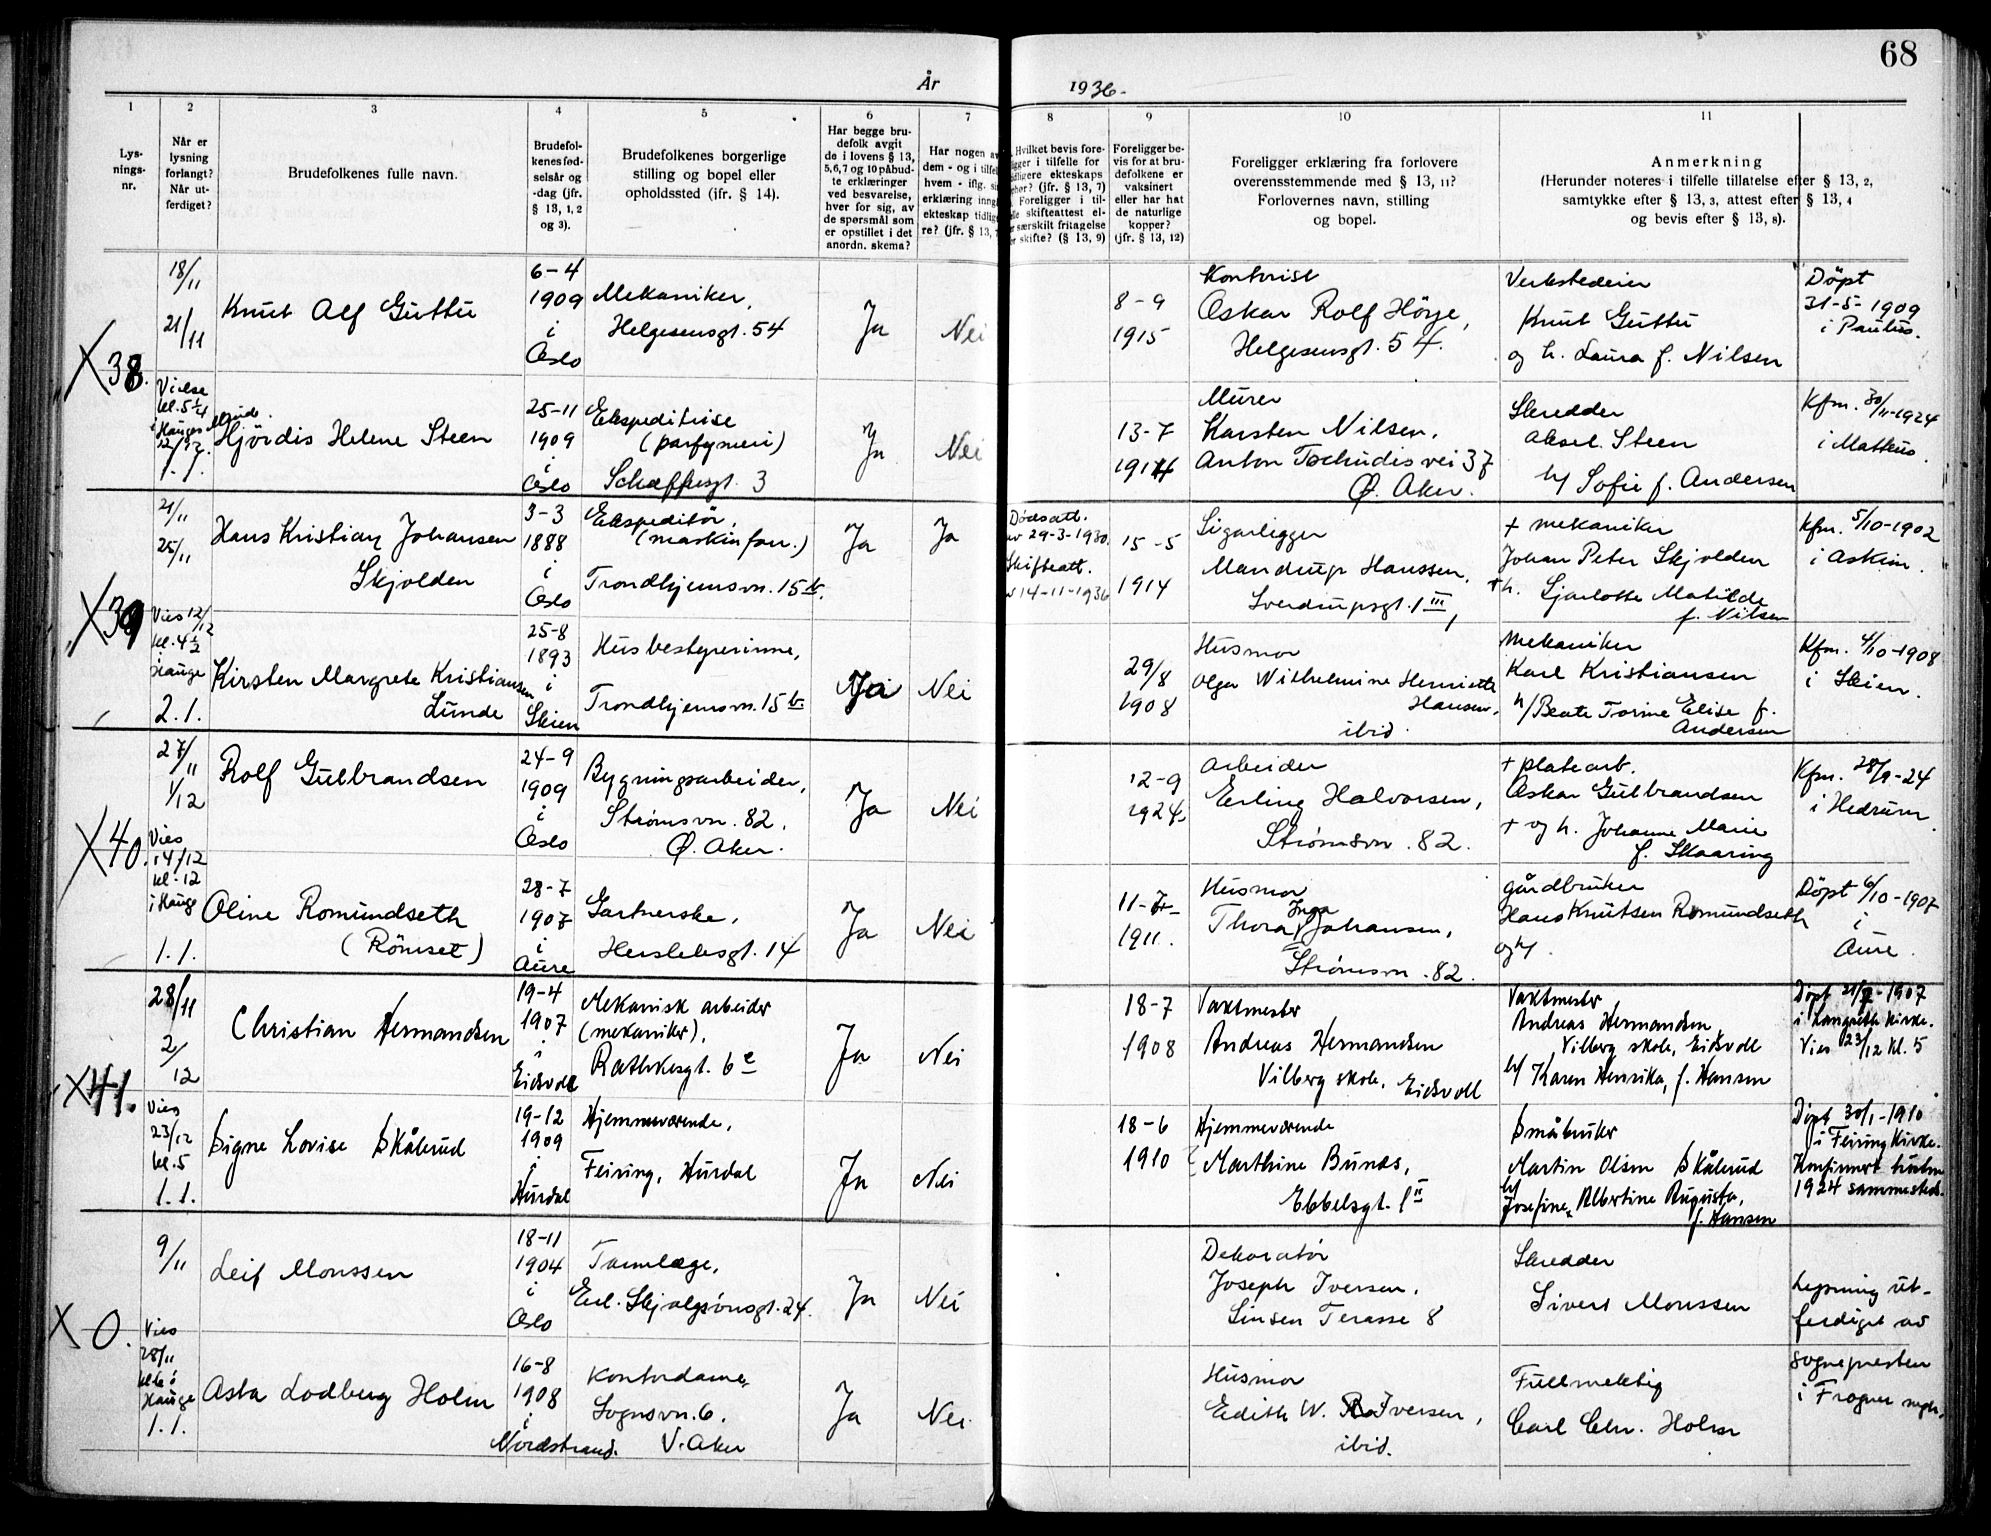 68
År 1936.
1
2
3
4
5
6
7
8
9
10
11
Lys-
nings-
nr.
Når er
lysning
forlangt?
Når ut-
ferdiget?
Brudefolkenes fulle navn.
Brudefol-
kenes fød-
selsår og
-dag (jfr.
§ 13, 1, 2
og 3).
Brudefolkenes borgerlige
stilling og bopel eller
opholdssted (jfr. § 14).
Har begge bru-
defolk avgit
de i lovens § 13,
5,6,7 og 10 påbud-
te erklæringer
ved besvarelse,
hver for sig, av
de spørsmål som
er opstillet i det
anordn. skema?
Har nogen av
dem - og i tilfel
hvem - iflg. si
erklæring inng
ekteskap tidlig
re? (jfr. § 13, 7
Hvilket bevis fore-
ligger i tilfelle for
tidligere ekteskaps
? (jfr. § 13, 7)
Foreligger i til-
skifteattest el-
særskilt fritagelse
skifte? (§ 13, 9)
Foreligger be-
vis for at bru-
defolkene er
vaksinert
eller har hat
de naturlige
kopper?
(jfr. § 13, 12)
Foreligger erklæring fra forlovere
overensstemmende med § 13, 11?
Forlovernes navn, stilling
og bopel.
Anmerkning
(Herunder noteres i tilfelle tillatelse efter § 13, 2,
samtykke efter § 13, 3, attest efter § 13, 4
og bevis efter § 13, 8).
X 38.
18/11
21/11
Vielse
kl. 5 1/4
Knut Alf Guttu
6-4
1909
i
Oslo
Mekaniker,
Helgesensgt. 54
Ja
Nei
8-9
1915
Kontorist
Oskar Rolf Hörje,
Helgesensgt. 54.
Verkstedeier
Knut Guttu
og h. Laura f. Nilsen
Döpt
31-5-1909
i Paulus.
Hjördis Helene Steen
25-11
1909
i
Oslo
Ekspeditrise
(parfymeri)
Schæffersgt. 3
Ja
Nei
13-7
1914
Murer
Karsten Nilsen,
Anton Tschudis vei 37
Ø. Aker.
Skredder
Aksel Steen
h/ Sofie f. Andersen
Kfm. 30/11-1924
i Matteus.
X 39
21/11
25/11
Vies 12/12
kl. 4 1/2
i Hauge
2.1.
Hans Kristian Johansen
Skjolden
3-3
1888
i
Oslo
Ekspeditör,
(maskinforr.)
Trondhjemsvn. 15 b.
Ja
Ja
Dødsatt.
av 29-3-1930.
Skifteatt.
14-11-1936
15-5
1914
Sigarligger
Mandrup Hanssen,
Sverdrupsgt. 1 III,
+ mekaniker
Johan Peter Skjolden
+ h. Sjarlotte Matilde
f. Nilsen
Kfm. 5/10-1902
i Askim.
Kirsten Margrete Kristiansen
Lunde
25-8
1893
i
Skien
Husbestyrerinne,
Trondhjemsvn. 15 b.
Ja
Nei
29/8
1908
Husmor
Olga Wilhelmine Henriette
Hansen,
ibid.
Mekaniker
Karl Kristiansen
h/ Beate Torine Elise f.
Andersen
Kfm. 4/10-1908
i Skien.
X 40.
27/11
1/12
Vies
14/12
kl. 12
i Hauge
1.1.
Rolf Gulbrandsen
24-9
1909
i
Oslo
Bygningsarbeider,
Strömsvn. 82.
Ø. Aker.
Ja
Nei
12-9
1924
Arbeider
Erling Halvorsen,
Strømsvn. 82.
+ platearb.
Oskar Gulbrandsen
+ og h. Johanne Marie
f. Skaaring
Kfm. 28/9-24
i Hedrum.
Oline Romundseth
(Römset)
28-7
1907
i
Aure
Gartnerske,
Herslebsgt. 14
Ja
Nei
11-7-
1911.
Husmor
Thora Inga Johansen,
Strömsvn. 82.
gårdbruker
Hans Knutsen Romundseth
og h/
Döpt 6/10-1907
i
Aure.
X 41.
28/11
2/12
Vies
23/12
kl. 5
1.1.
Christian Hermandsen
19-4
1907
i
Eidsvoll
Mekanisk arbeider
(mekaniker).
Rathkesgt. 6 c
Ja
Nei
18-7
1908
Vaktmester
Andreas Hermandsen
Vilberg skole, Eidsvoll
Vaktmester
Andreas Hermandsen,
Vilberg skole, Eidsvoll
h/ Karen Henrika, f. Hansen
Döpt 21/7-1907
i Langseth kirke.
Vies 23/12 kl. 5
Signe Lovise Skålerud
19-12
1909
i
Hurdal
Hjemmeværende,
Feiring, Hurdal
Ja
Nei
18-6
1910
Hjemmeværende
Marthine Bunds,
Ebbelsgt. 1 II
Småbruker
Martin Olsen Skålerud
h/
Josefine Albertine Augusta,
f. Hansen
Döpt 30/1-1910
i Feiring kirke.
Konfirmert høsten
1924 sammesteds.
X 0.
9/11
Vies
28/11
kl. 6 i
Hauge
1.1.
Leif Monssen
18-11
1904
i
Oslo
Tannlæge,
Erl. Skjalgsönsgt. 24.
Ja
Nei
Dekoratør
Joseph Iversen,
Sinsen Terasse 8
Skredder
Sivert Monssen
Lysning ut-
ferdiget av
sognepresten
i Frogner
Asta Lodberg Holm
16-8
1908
i
Nordstrand
Kontordame,
Sognsvn. 6.
V. Aker
Ja
Nei
Husmor
Edith W. Iversen,
ibid.
Fullmektig
Carl Chr. Holm